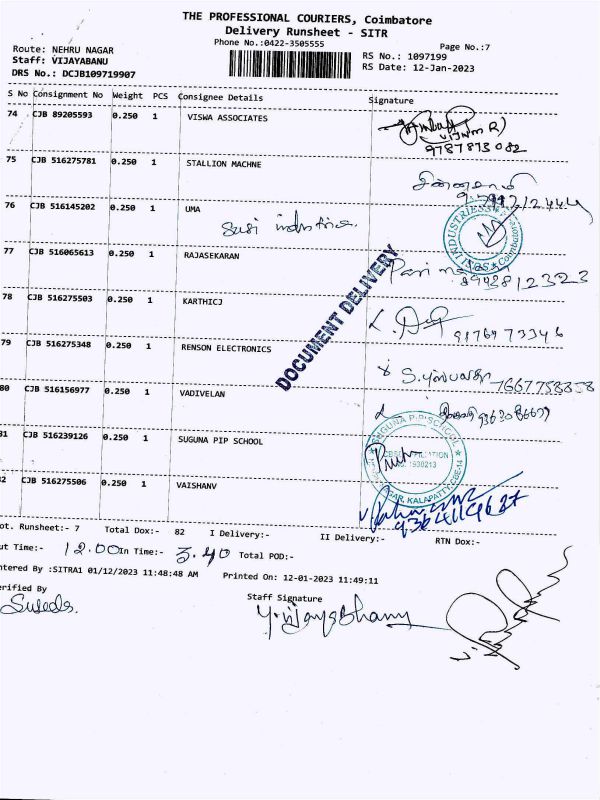 THE PROFESSIONAL COURIERS, Coimbatore
Delivery Runsheet - SITR
Phone No.:0422-3505555
Page No.:7
Route: NEHRU NAGAR
Staff: VIJAYABANU
DRS No.: DCJB109719907
RS No.: 1097199
RS Date: 12-Jan-2023
S No Consignment No Weight PCS Consignee Details Signature
74 CJB 89205593 0.250 1 VISWA ASSOCIATES
9787873082
75 CJB 516275781 0.250 1 STALLION MACHNE
76 CJB 516145202 0.250 1 UMA
Susi industries.
INDUSTRIES
Coimbatore
77 CJB 516065613 0.250 1 RAJASEKARAN
78 CJB 516275503 0.250 1 KARTHICJ
9176973346
79 CJB 516275348 0.250 1 RENSON ELECTRONICS
7667758858
DOCUMENT DELIVERY
80 CJB 516156977 0.250 1 VADIVELAN
31 CJB 516239126 0.250 1 SUGUNA PIP SCHOOL
SUGUNA P.I.P SCHOOL
1930213
KALAPATTI, CBE-14
32 CJB 516275506 0.250 1 VAISHANV
ot. Runsheet:- 7 Total Dox:- 82 I Delivery:- II Delivery:- RTN Dox:-
ut Time:- 12.00 In Time:- 3.40 Total POD:-
ntered By :SITRA1 01/12/2023 11:48:48 AM Printed On: 12-01-2023 11:49:11
erified By
Staff Signature
Y. Vijaya Bhanu